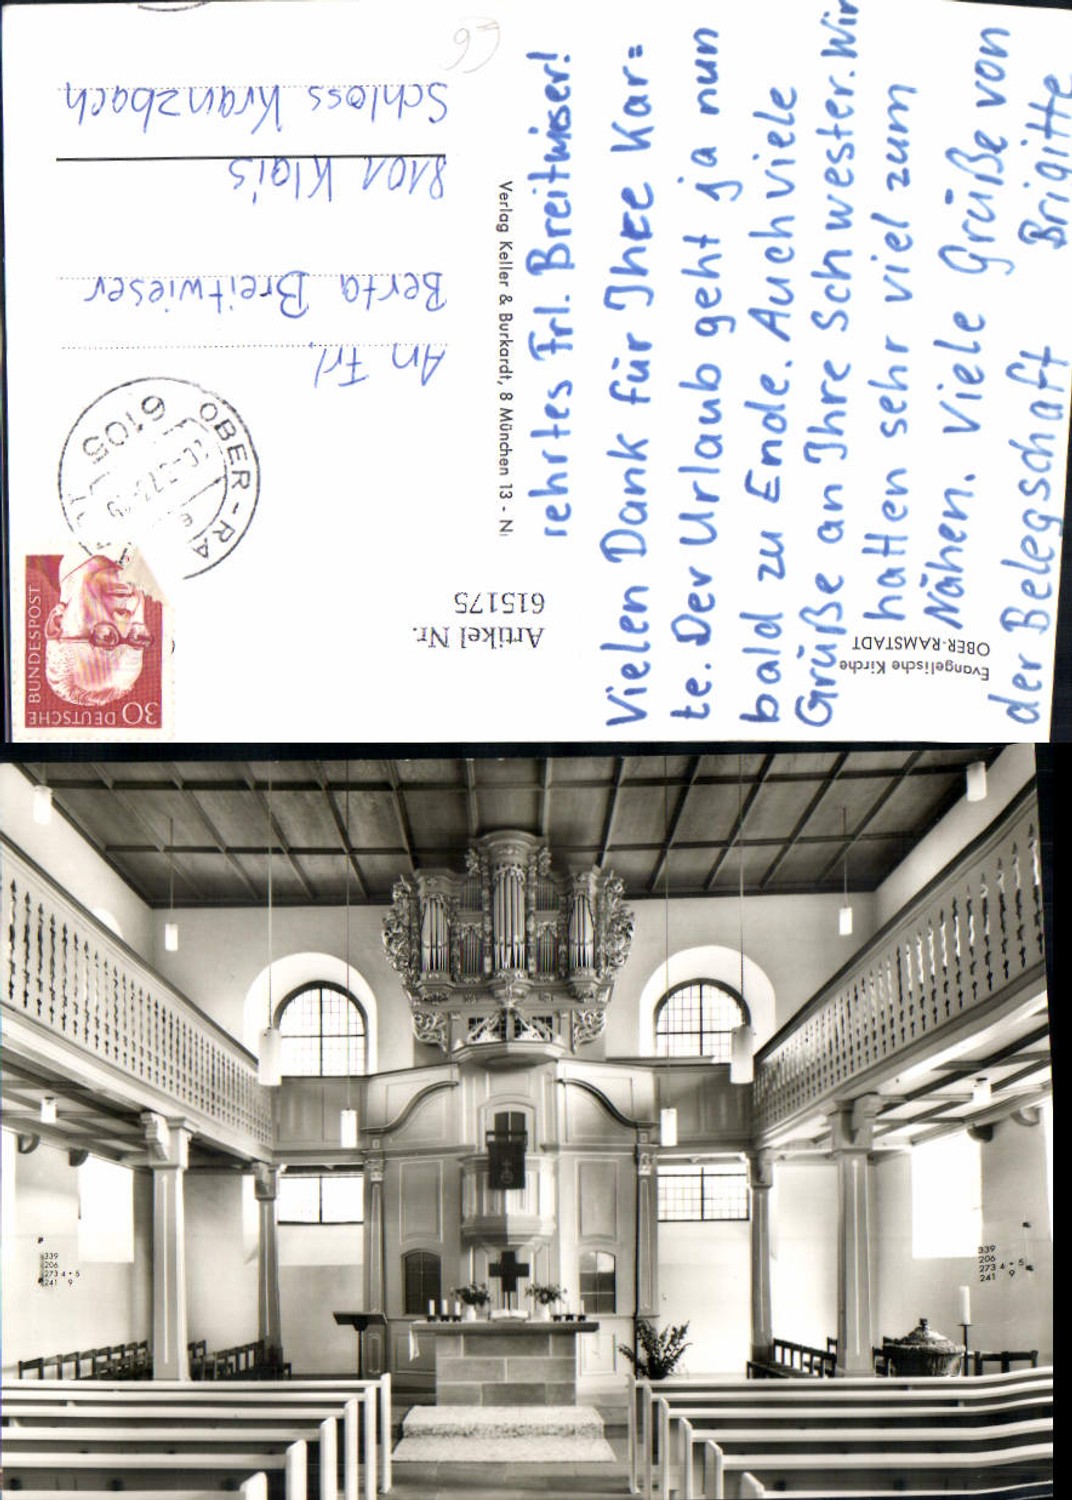 Evangelische Kirche
OBER-RAMSTADT
rehrtes Frl. Breitwieser!
Vielen Dank für Ihre Kar=
te. Der Urlaub geht ja nun
bald zu Ende. Auch viele
Grüße an Ihre Schwester. Wir
hatten sehr viel zum
Nähen. Viele Grüße von
der Belegschaft
Brigitte
Verlag Keller & Burkardt, 8 München 13 - N
Artikel Nr.
615175
DEUTSCHE
BUNDESPOST
30
6105
OBER-RA
An Frl.
Berta Breitwieser
8101 Klais
Schloss Kranzbach
339
206
273 4 + 5
241 9
339
206
273 4 + 5
241 9